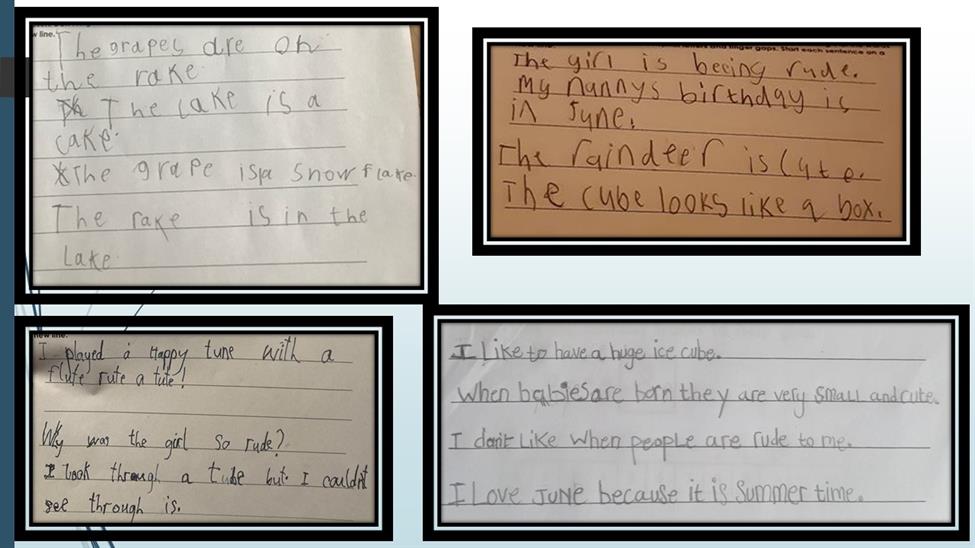 w line.
The grapes are on
the rake.
The lake is a
cake.
The grape is a snowflake.
The rake is in the
lake.
finger gaps. Start each sentence on a
The girl is beeing rude.
My nannys birthday is
in June.
The raindeer is cute.
The cube looks like a box.
new line.
I played a Happy tune with a
flute rute a tute!
Why was the girl so rude?
I look through a tube but I couldn't
see through is.
I Like to have a huge ice cube.
When babies are born they are very small and cute.
I don't Like when people are rude to me.
I Love JUNE because it is Summer time.